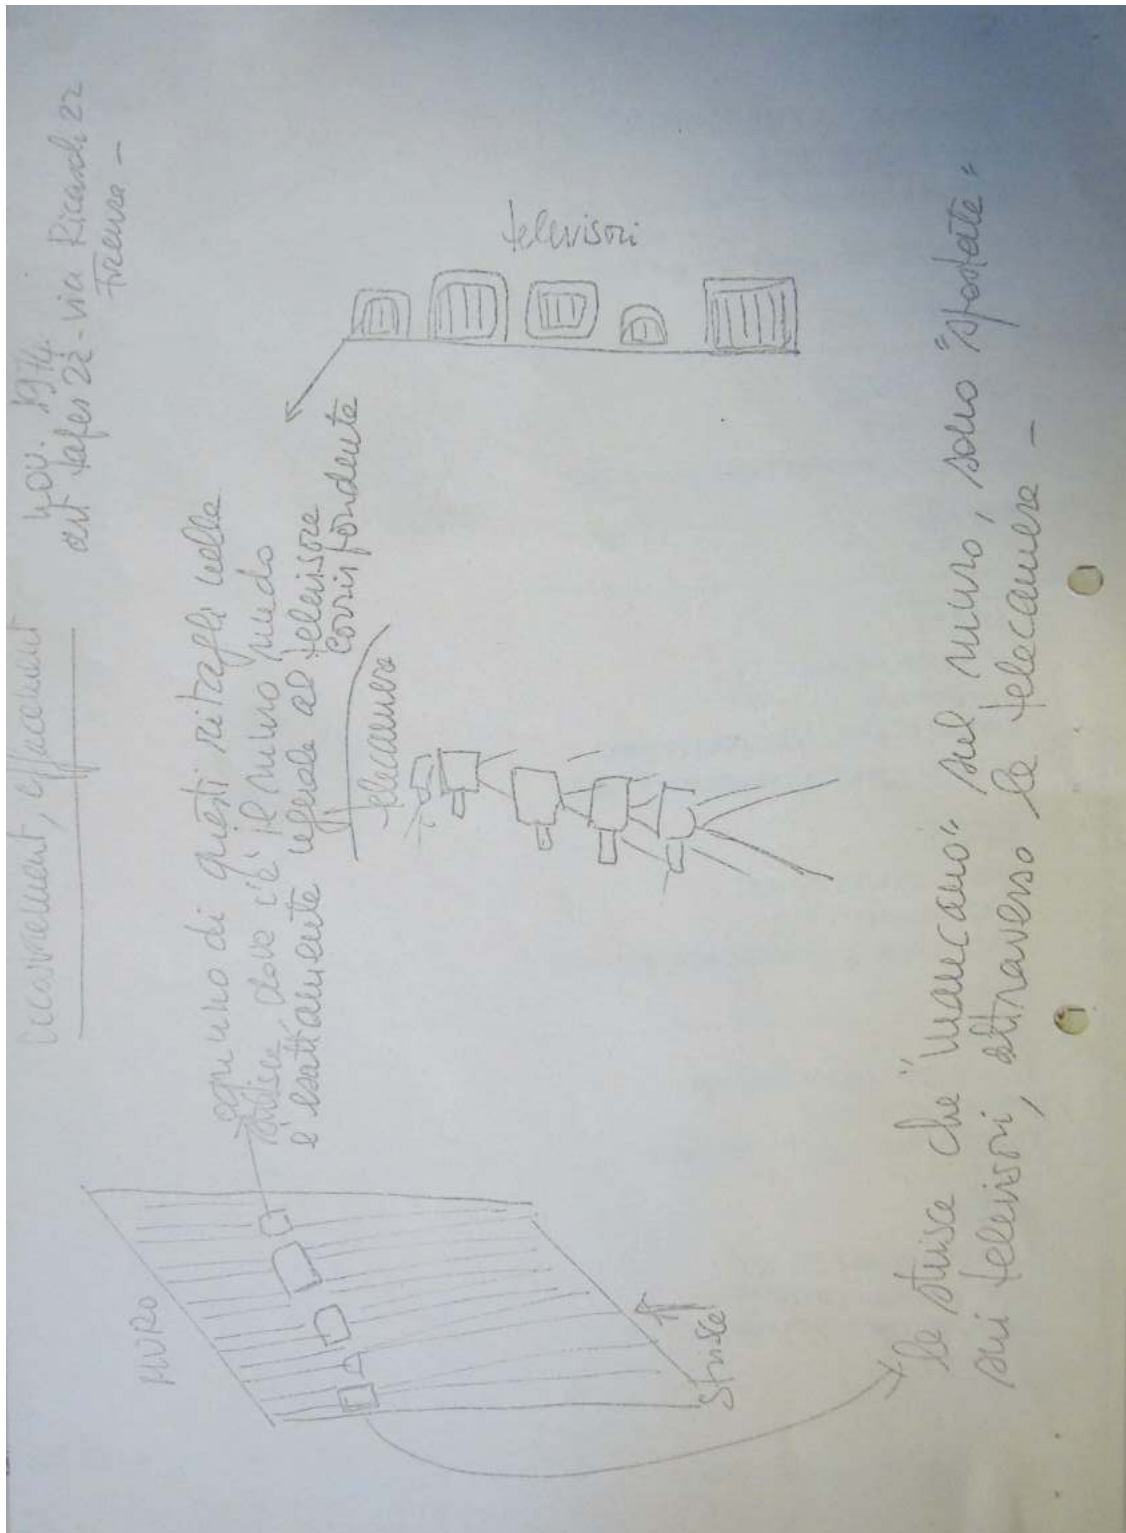 nov. 1974.
art tapes 22 - via Ricasoli 22
Firenze -
MURO
ognuno di questi ritagli nelle
dove c'è il muro nudo
è esattamente uguale al televisore
corrispondente
telecamere
televisori
strisce
le strisce che "mancano" sul muro, sono "spostate"
sui televisori, attraverso le telecamere -